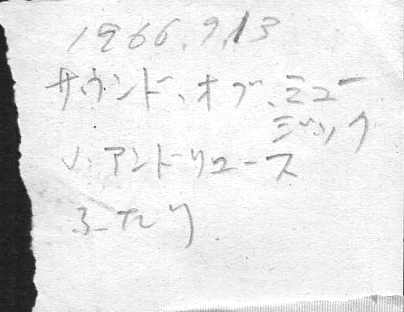 1966.9.13
サウンド、オブ、ミュー
ジック
J.アンドリュース
ふたり